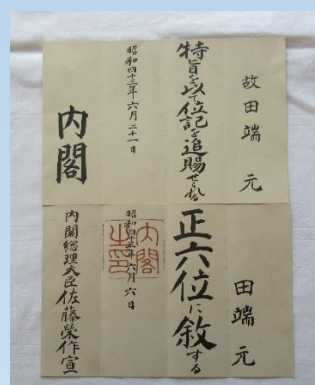 故田端 元
特旨を以て位記を追賜せられる
昭和四十三年六月二十一日
内閣
田端 元
正六位に敘する
昭和四十三年六月六日
内閣之印
内閣総理大臣佐藤榮作宣